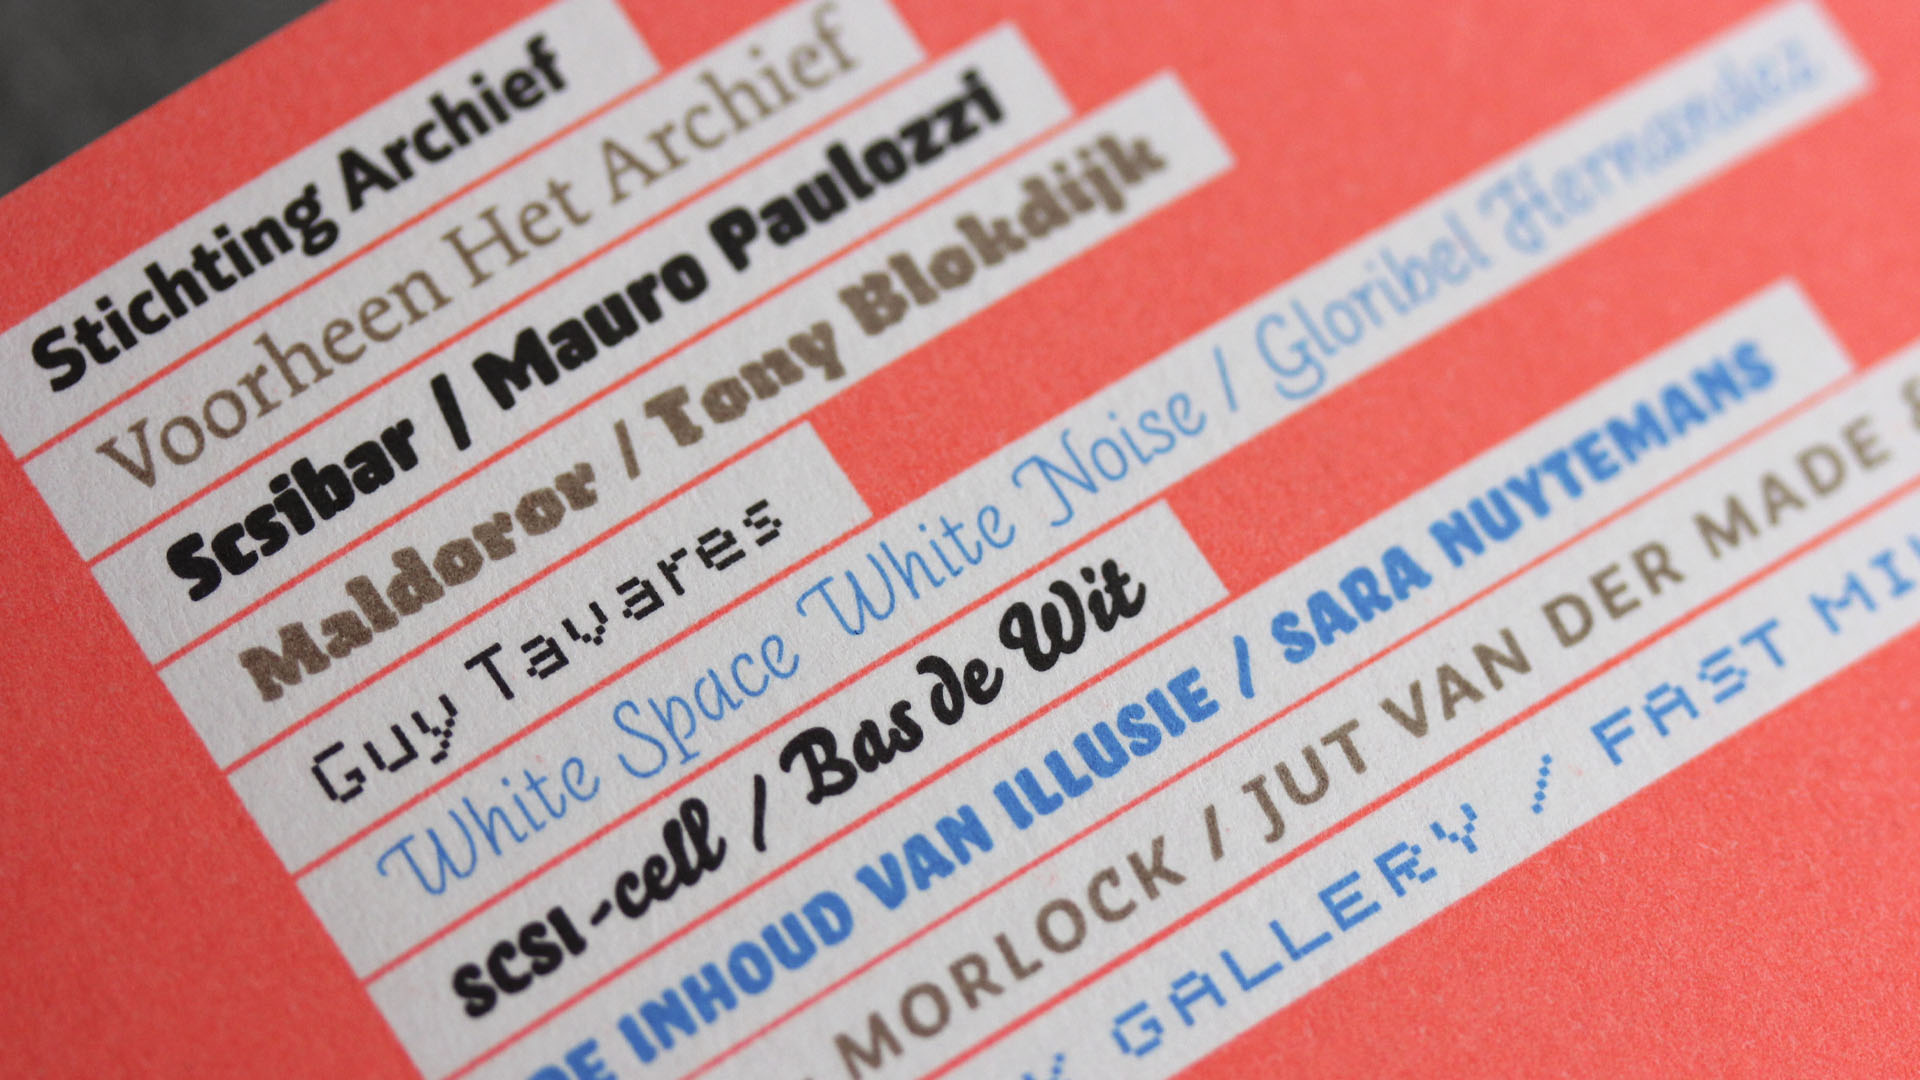 Stichting Archief
Voorheen Het Archief
Scsibar / Mauro Paulozzi
Maldoror / Tony Blokdijk
Guy Tavares
White Space White Noise / Gloribel Hernandez
SCSI-cell / Bas de Wit
DE INHOUD VAN ILLUSIE / SARA NUYTEMANS
MORLOCK / JUT VAN DER MADE &
GALLERY / FAST